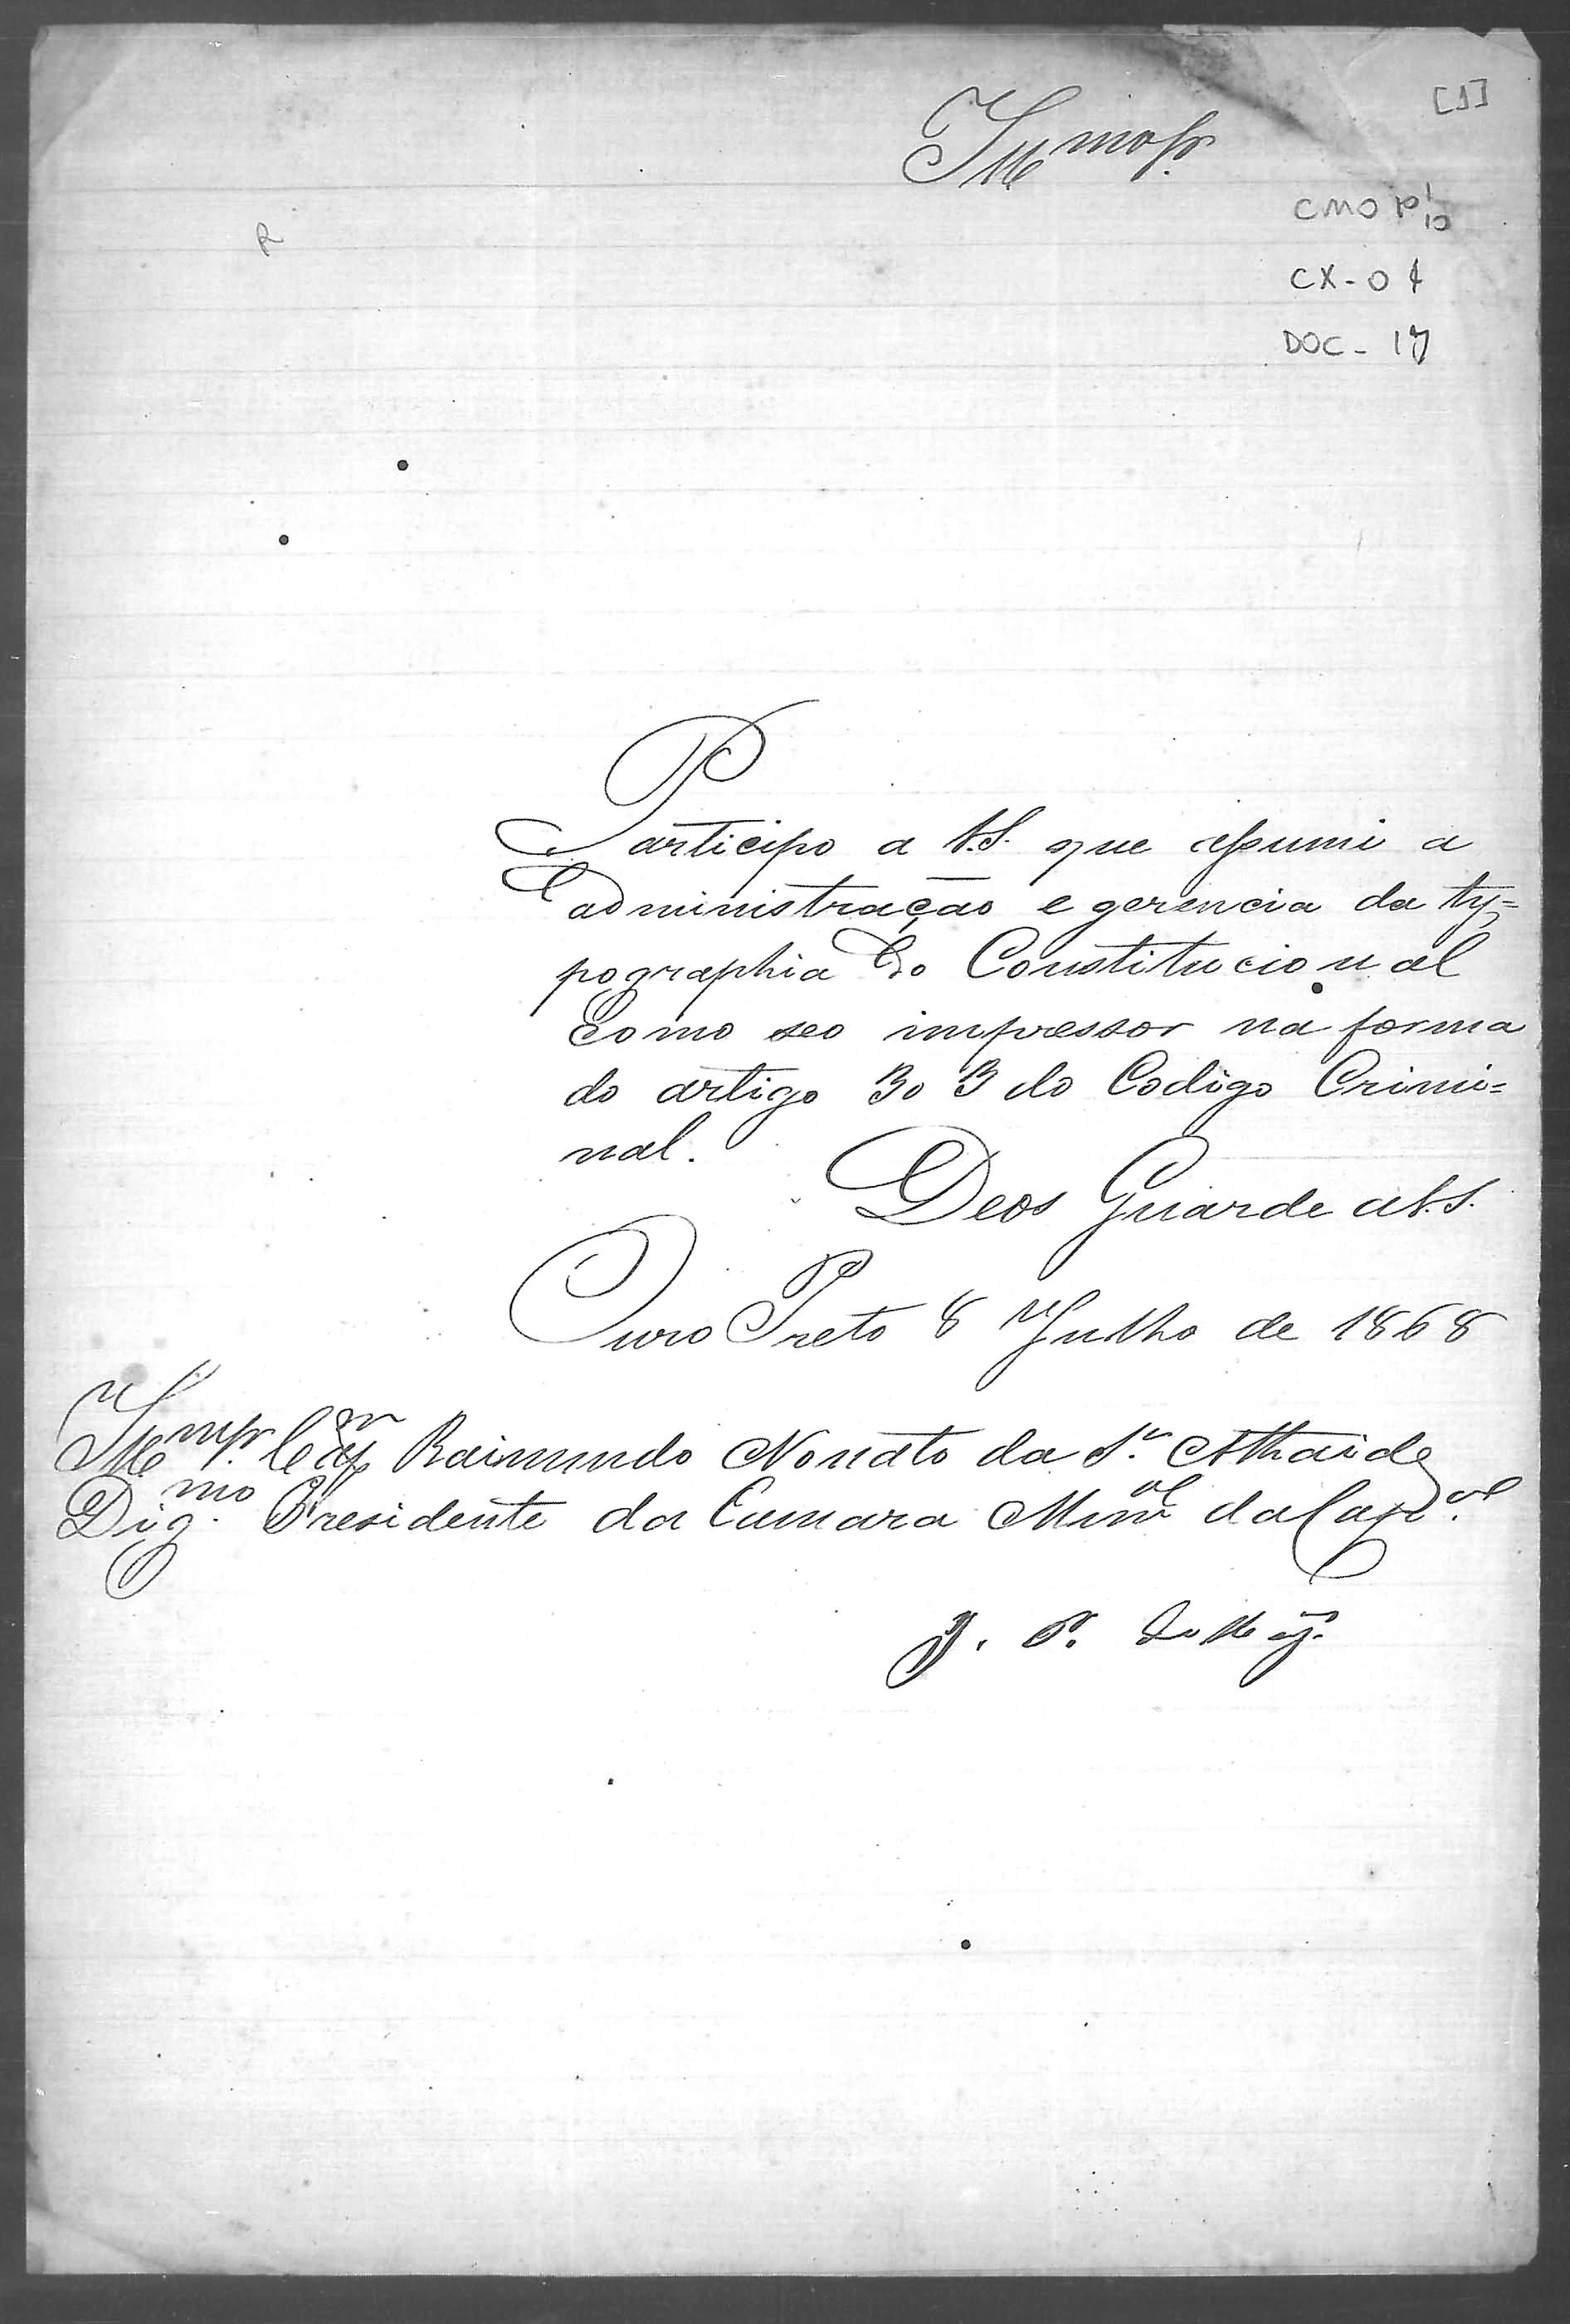 [1]
Illmo Sr.
CMOP 1/10
CX-01
DOC-17
Participo a V.S. que assumi a
administração e gerencia da ty=
pographia do Constitucional
como seo impressor na forma
do artigo 303 do Codigo Crimi=
nal.
Deos Guarde a V.S.
Ouro Preto 8 Julho de 1868
Illmo Sr. Raimundo Nonato da Sa. Athaide
Digmo. Presidente da Camara Munal da Capal.
J. P.